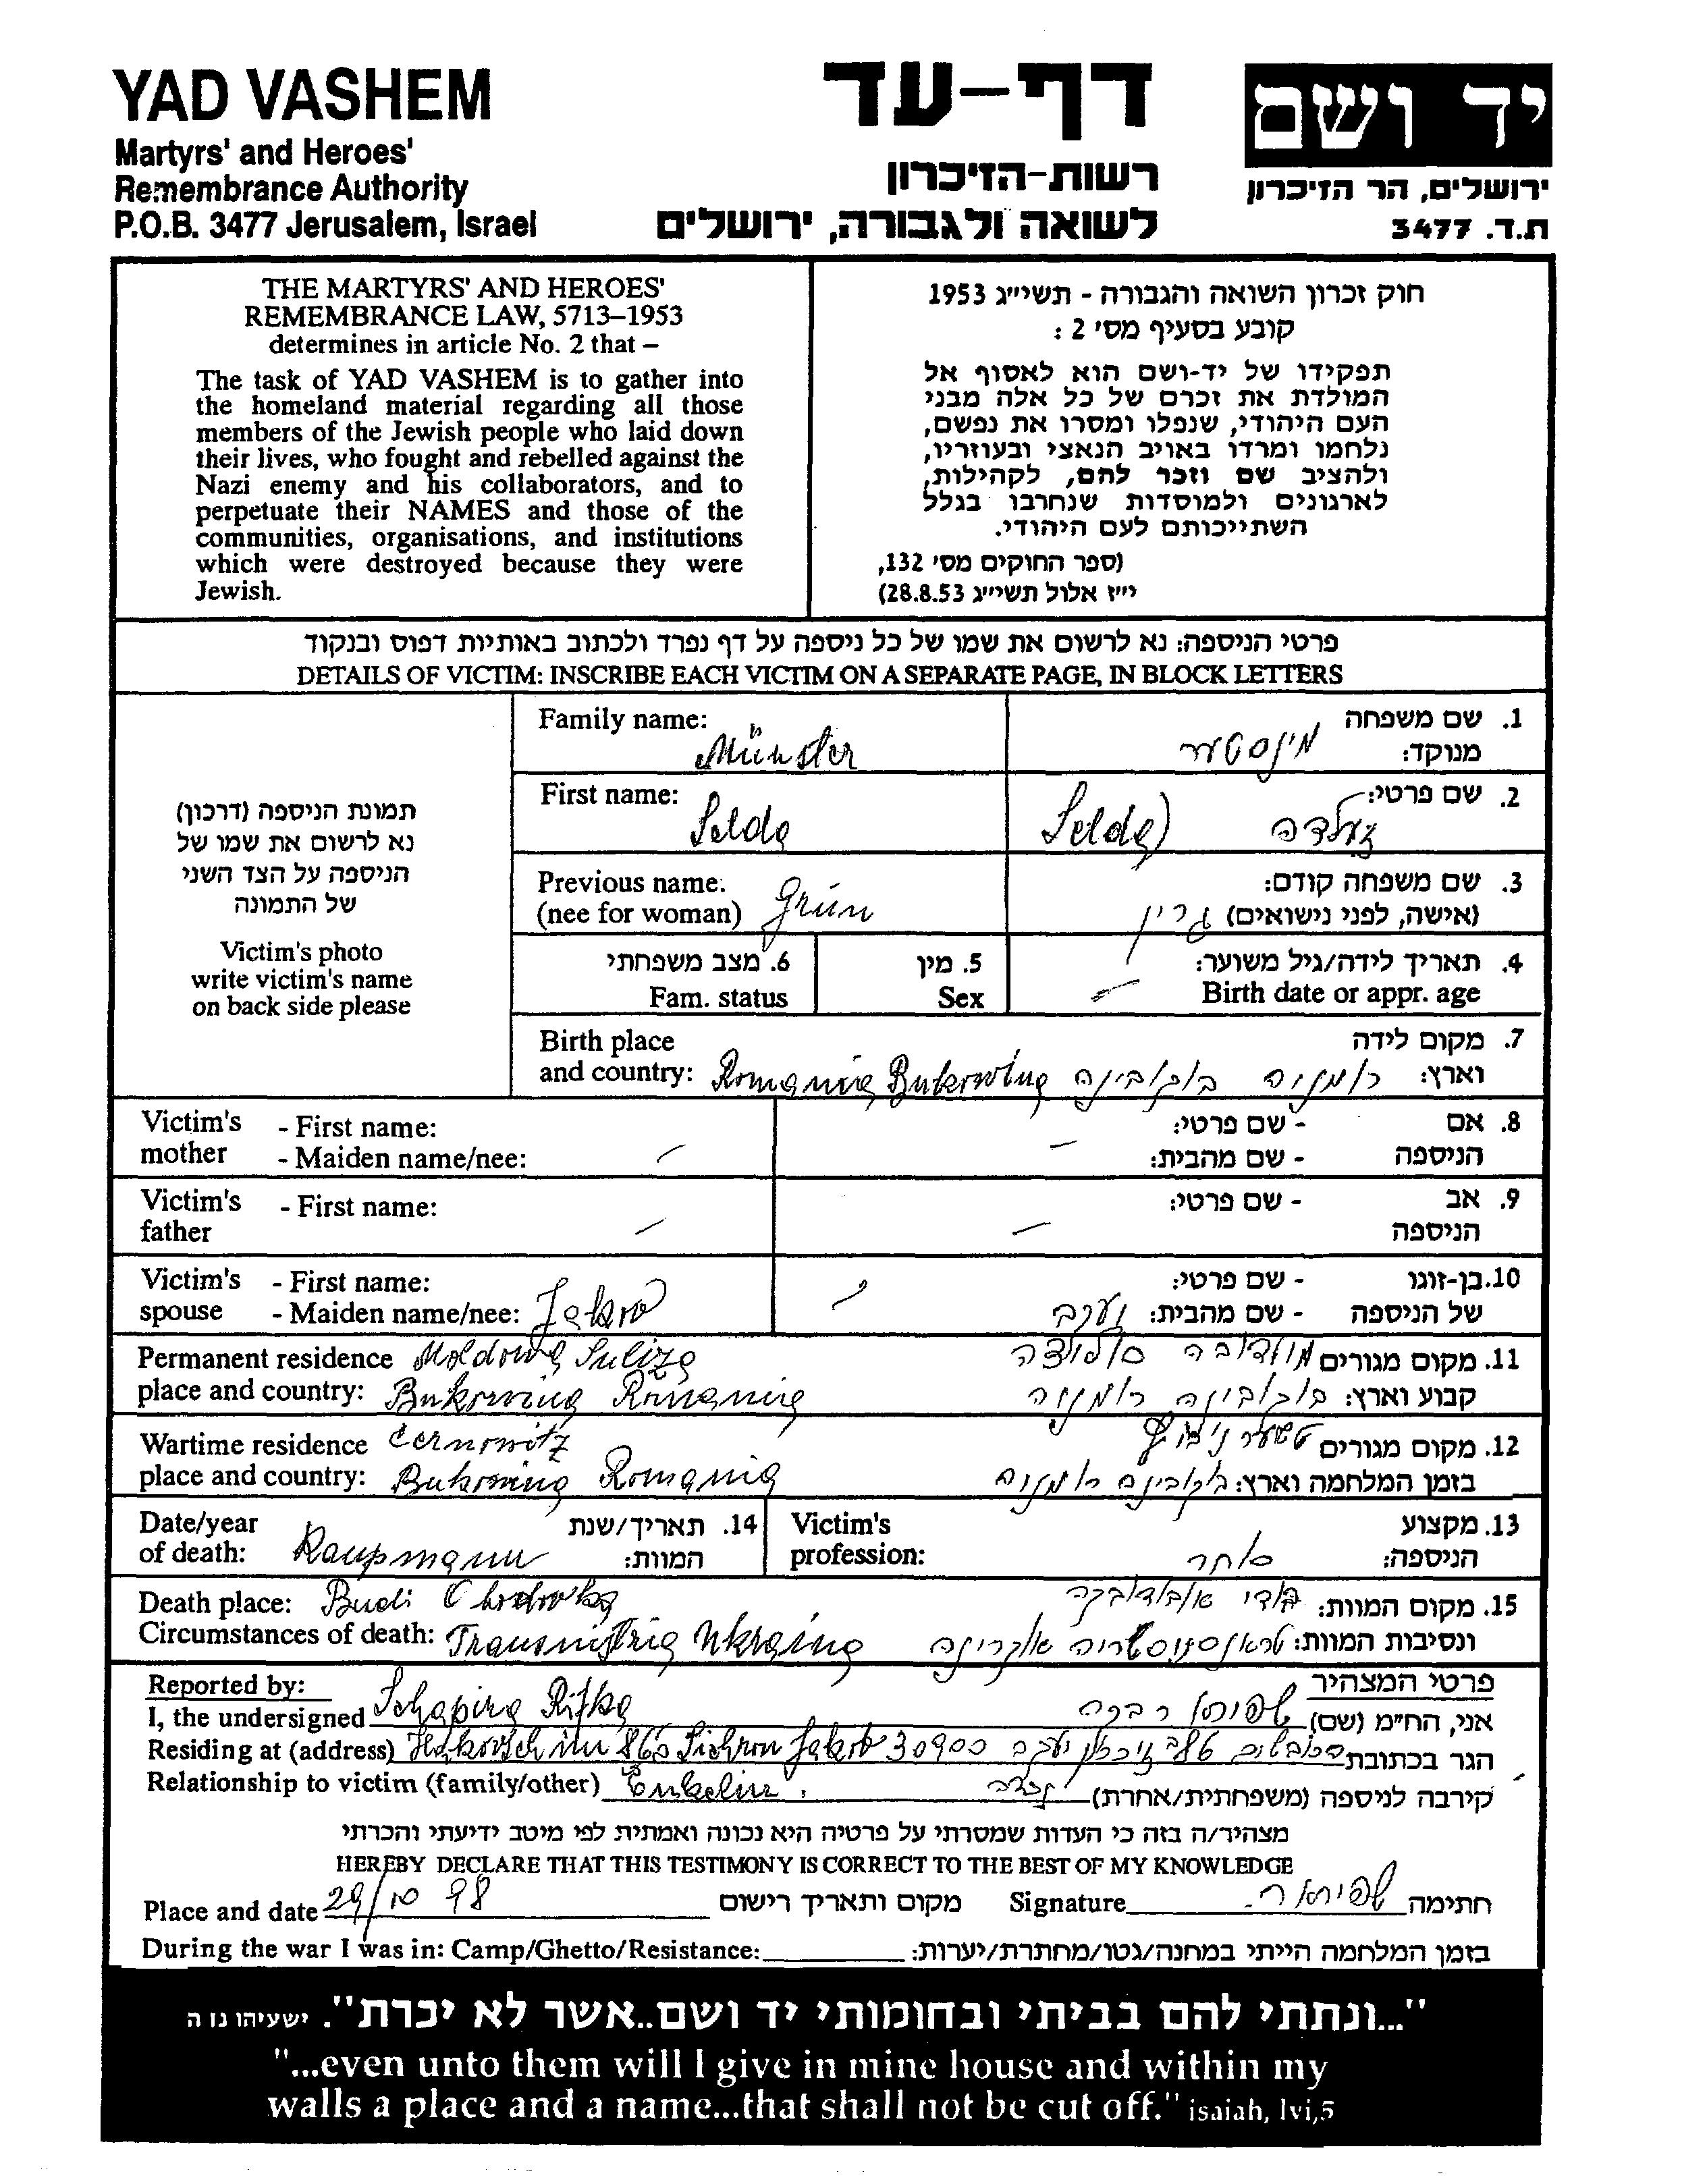 YAD VASHEM
Martyrs' and Heroes'
Remembrance Authority
P.O.B. 3477 Jerusalem, Israel
דף-עד
רשות-הזיכרון
לשואה ולגבורה, ירושלים
יד ושם
ירושלים, הר הזיכרון
ת.ד. 3477
THE MARTYRS' AND HEROES'
REMEMBRANCE LAW, 5713–1953
determines in article No. 2 that –
The task of YAD VASHEM is to gather into
the homeland material regarding all those
members of the Jewish people who laid down
their lives, who fought and rebelled against the
Nazi enemy and his collaborators, and to
perpetuate their NAMES and those of the
communities, organisations, and institutions
which were destroyed because they were
Jewish.
חוק זכרון השואה והגבורה - תשי"ג 1953
קובע בסעיף מס' 2 :
תפקידו של יד-ושם הוא לאסוף אל
המולדת את זכרם של כל אלה מבני
העם היהודי, שנפלו ומסרו את נפשם,
נלחמו ומרדו באויב הנאצי ובעוזריו,
ולהציב שם וזכר להם, לקהילות,
לארגונים ולמוסדות שנחרבו בגלל
השתייכותם לעם היהודי.
(ספר החוקים מס' 132,
י"ז אלול תשי"ג 28.8.53)
פרטי הניספה: נא לרשום את שמו של כל ניספה על דף נפרד ולכתוב באותיות דפוס ובנקוד
DETAILS OF VICTIM: INSCRIBE EACH VICTIM ON A SEPARATE PAGE, IN BLOCK LETTERS
תמונת הניספה (דרכון)
נא לרשום את שמו של
הניספה על הצד השני
של התמונה
Victim's photo
write victim's name
on back side please
Family name: Münster
1. שם משפחה
מנוקד: מינסטער
First name: Selda
2. שם פרטי: זעלדה (Selda)
Previous name:
(nee for woman) Grün
3. שם משפחה קודם:
(אישה, לפני נישואים) גרין
6. מצב משפחתי
Fam. status
5. מין
Sex
4. תאריך לידה/גיל משוער:
Birth date or appr. age –
Birth place
and country: Romania Bukowina
7. מקום לידה
וארץ: רומניה בוקובינה
Victim's mother - First name:
- Maiden name/nee: –
8. אם הניספה - שם פרטי:
- שם מהבית: –
Victim's father - First name: –
9. אב הניספה - שם פרטי: –
Victim's spouse - First name:
- Maiden name/nee: Jakob
10. בן-זוגו של הניספה - שם פרטי:
- שם מהבית: יעקב
Permanent residence Moldowa Suliza
place and country: Bukowina Romania
11. מקום מגורים מולדובה סוליצה
קבוע וארץ: בוקובינה רומניה
Wartime residence Cernowitz
place and country: Bukowina Romania
12. מקום מגורים טשערנוביץ
בזמן המלחמה וארץ: בוקובינה רומניה
Date/year
of death: Kaupmann
14. תאריך/שנת
המוות:
Victim's
profession:
13. מקצוע
הניספה: סוחר
Death place: Budi Obodowka
Circumstances of death: Transnistria Ukraina
15. מקום המוות: בודי אובודובקה
ונסיבות המוות: טראנסניסטריה אוקרינה
Reported by:
I, the undersigned Schapira Rifka
Residing at (address) 865 Sichron Jakob 30900
Relationship to victim (family/other) Enkelin
פרטי המצהיר
אני, הח"מ (שם) שפירא רבקה
הגר בכתובת זיכרון יעקב
קירבה לניספה (משפחתית/אחרת) נכדה
מצהיר/ה בזה כי העדות שמסרתי על פרטיה היא נכונה ואמתית לפי מיטב ידיעתי והכרתי
HEREBY DECLARE THAT THIS TESTIMONY IS CORRECT TO THE BEST OF MY KNOWLEDGE
Place and date 29/10 98 מקום ותאריך רישום
Signature שפירא ר. חתימה
During the war I was in: Camp/Ghetto/Resistance: בזמן המלחמה הייתי במחנה/גטו/מחתרת/יערות:
"...ונתתי להם בביתי ובחומותי יד ושם..אשר לא יכרת". ישעיהו נז ה
"...even unto them will I give in mine house and within my
walls a place and a name...that shall not be cut off." isaiah, lvi,5